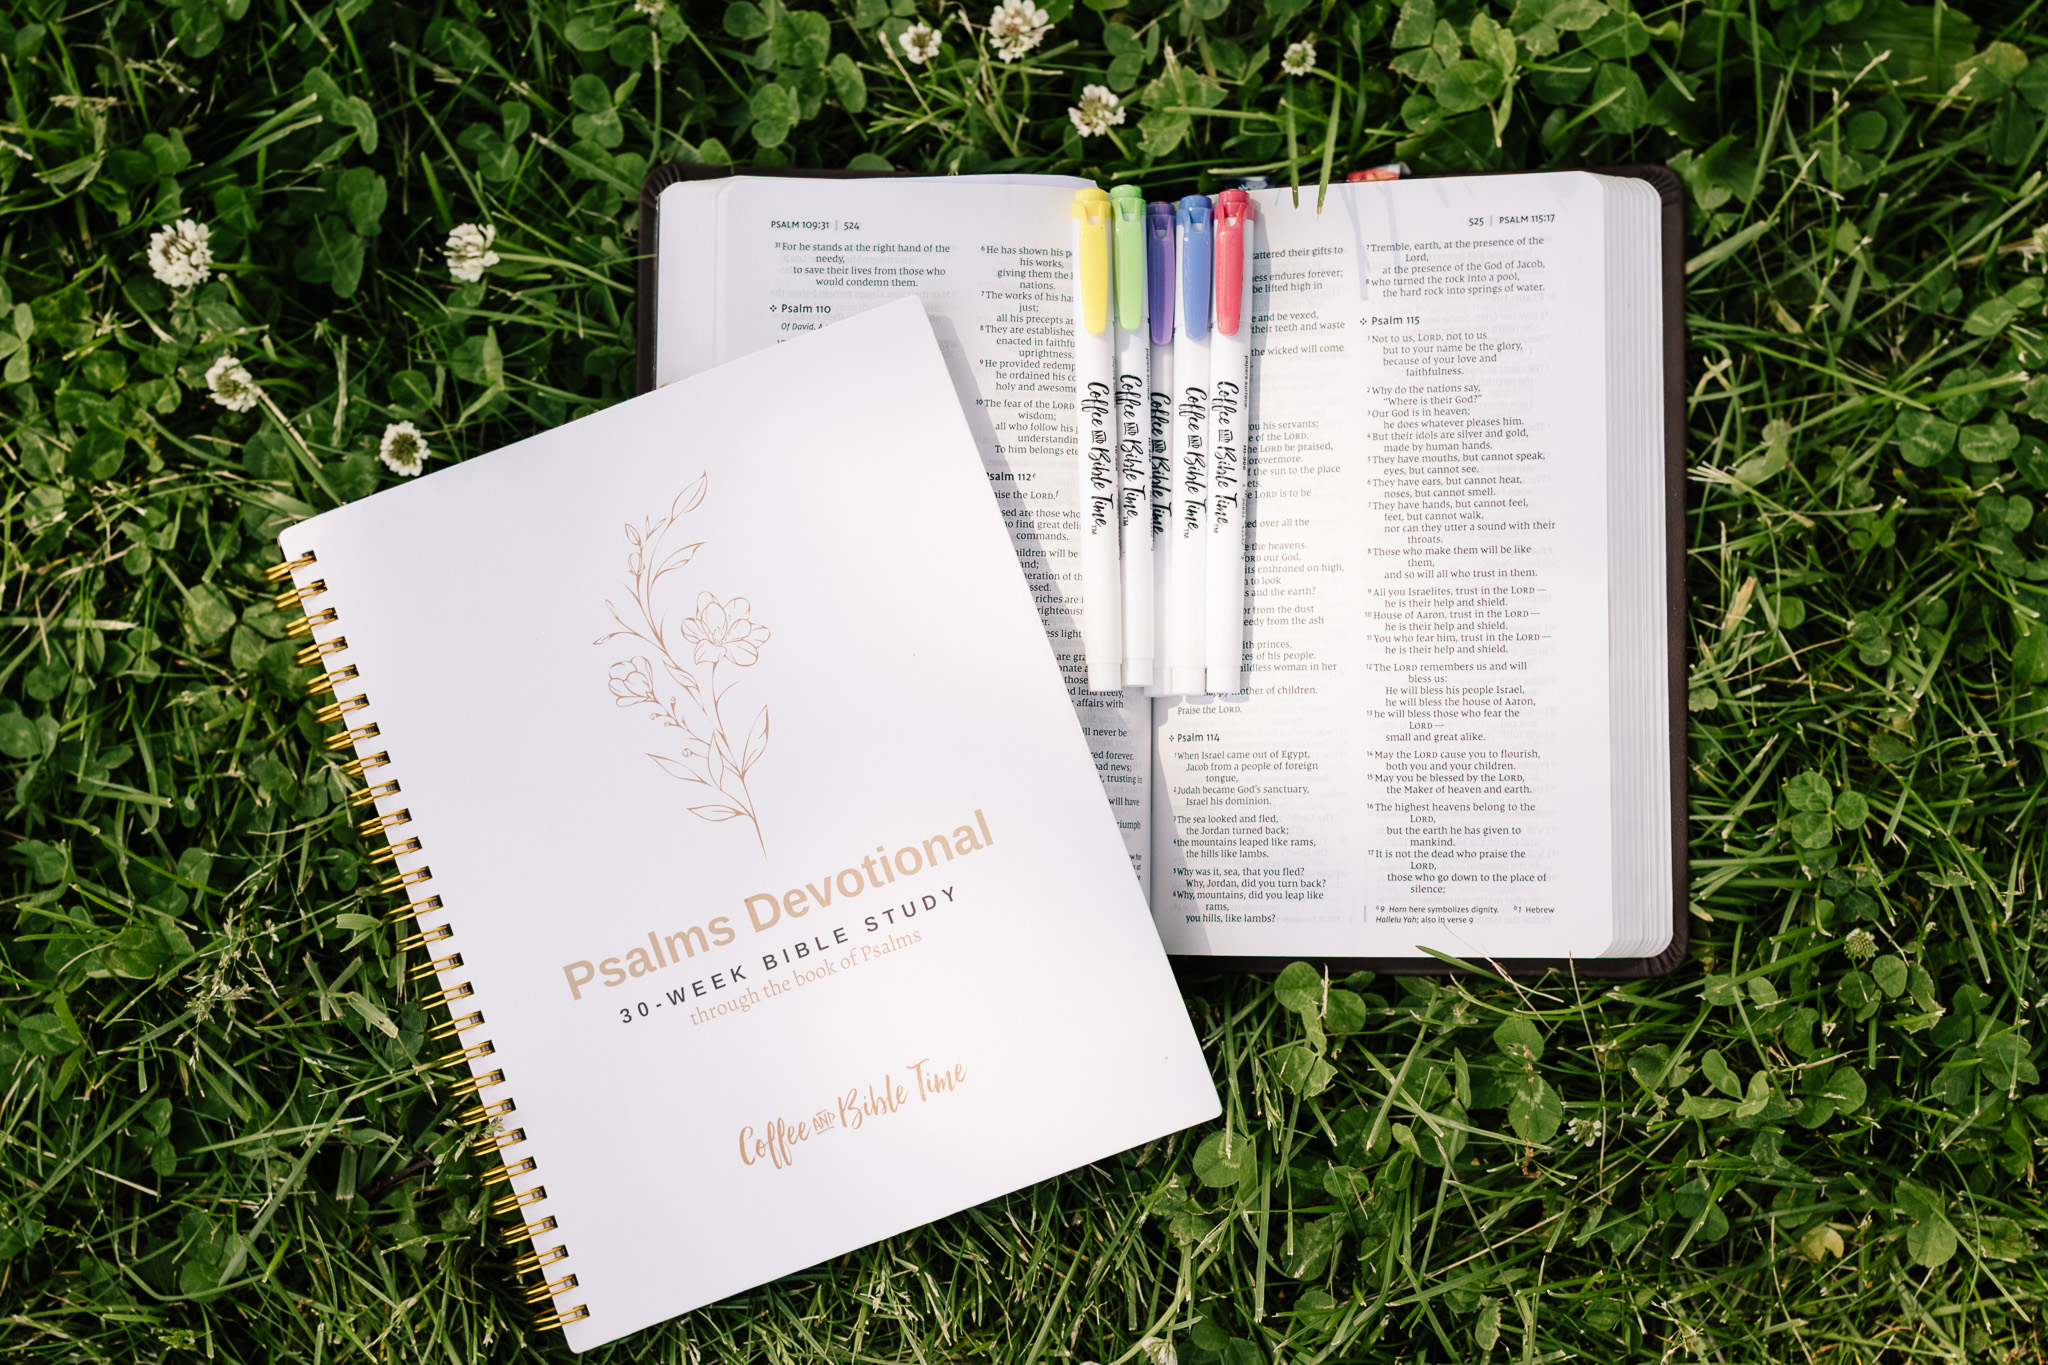 Psalms Devotional
30-WEEK BIBLE STUDY
through the book of Psalms
Coffee AND Bible Time
Coffee AND Bible Time™
Coffee AND Bible Time™
Coffee AND Bible Time
Coffee AND Bible Time™
Coffee AND Bible Time™
PSALM 109:31 | 524
31 For he stands at the right hand of the
needy,
to save their lives from those who
would condemn them.
Psalm 110
Of David. A
6 He has shown his
his works,
giving them the
nations.
7 The works of his
just;
all his precepts
8 They are established
enacted in
uprightness.
9 He provided
he ordained his
holy and awesome
10 The fear of the LORD
wisdom;
all who follow his
To him belongs
Psalm 112
the LORD.
are those who
find great
commands.
will be
of the
riches are
light
those
lend freely,
affairs with
never be
forever.
news;
trusting
will have
525 | PSALM 115:17
their gifts to
endures forever;
be lifted high in
and be vexed,
their teeth and waste
the wicked will come
his servants;
of the LORD.
LORD be praised,
the sun to the place
LORD is to be
over all the
the heavens.
our God,
enthroned on high,
to look
and the earth?
from the dust
from the ash
princes,
of his people.
woman in her
mother of children.
Praise the LORD.
Psalm 114
1 When Israel came out of Egypt,
Jacob from a people of foreign
tongue,
2 Judah became God's sanctuary,
Israel his dominion.
3 The sea looked and fled,
the Jordan turned back;
4 the mountains leaped like rams,
the hills like lambs.
5 Why was it, sea, that you fled?
Why, Jordan, did you turn back?
6 Why, mountains, did you leap like
rams,
you hills, like lambs?
7 Tremble, earth, at the presence of the
Lord,
at the presence of the God of Jacob,
8 who turned the rock into a pool,
the hard rock into springs of water.
Psalm 115
1 Not to us, LORD, not to us
but to your name be the glory,
because of your love and
faithfulness.
2 Why do the nations say,
"Where is their God?"
3 Our God is in heaven;
he does whatever pleases him.
4 But their idols are silver and gold,
made by human hands.
5 They have mouths, but cannot speak,
eyes, but cannot see.
6 They have ears, but cannot hear,
noses, but cannot smell.
7 They have hands, but cannot feel,
feet, but cannot walk,
nor can they utter a sound with their
throats.
8 Those who make them will be like
them,
and so will all who trust in them.
9 All you Israelites, trust in the LORD—
he is their help and shield.
10 House of Aaron, trust in the LORD—
he is their help and shield.
11 You who fear him, trust in the LORD—
he is their help and shield.
12 The LORD remembers us and will
bless us:
He will bless his people Israel,
he will bless the house of Aaron,
13 he will bless those who fear the
LORD—
small and great alike.
14 May the LORD cause you to flourish,
both you and your children.
15 May you be blessed by the LORD,
the Maker of heaven and earth.
16 The highest heavens belong to the
LORD,
but the earth he has given to
mankind.
17 It is not the dead who praise the
LORD,
those who go down to the place of
silence;
a 9 Horn here symbolizes dignity. b 1 Hebrew
Hallelu Yah; also in verse 9